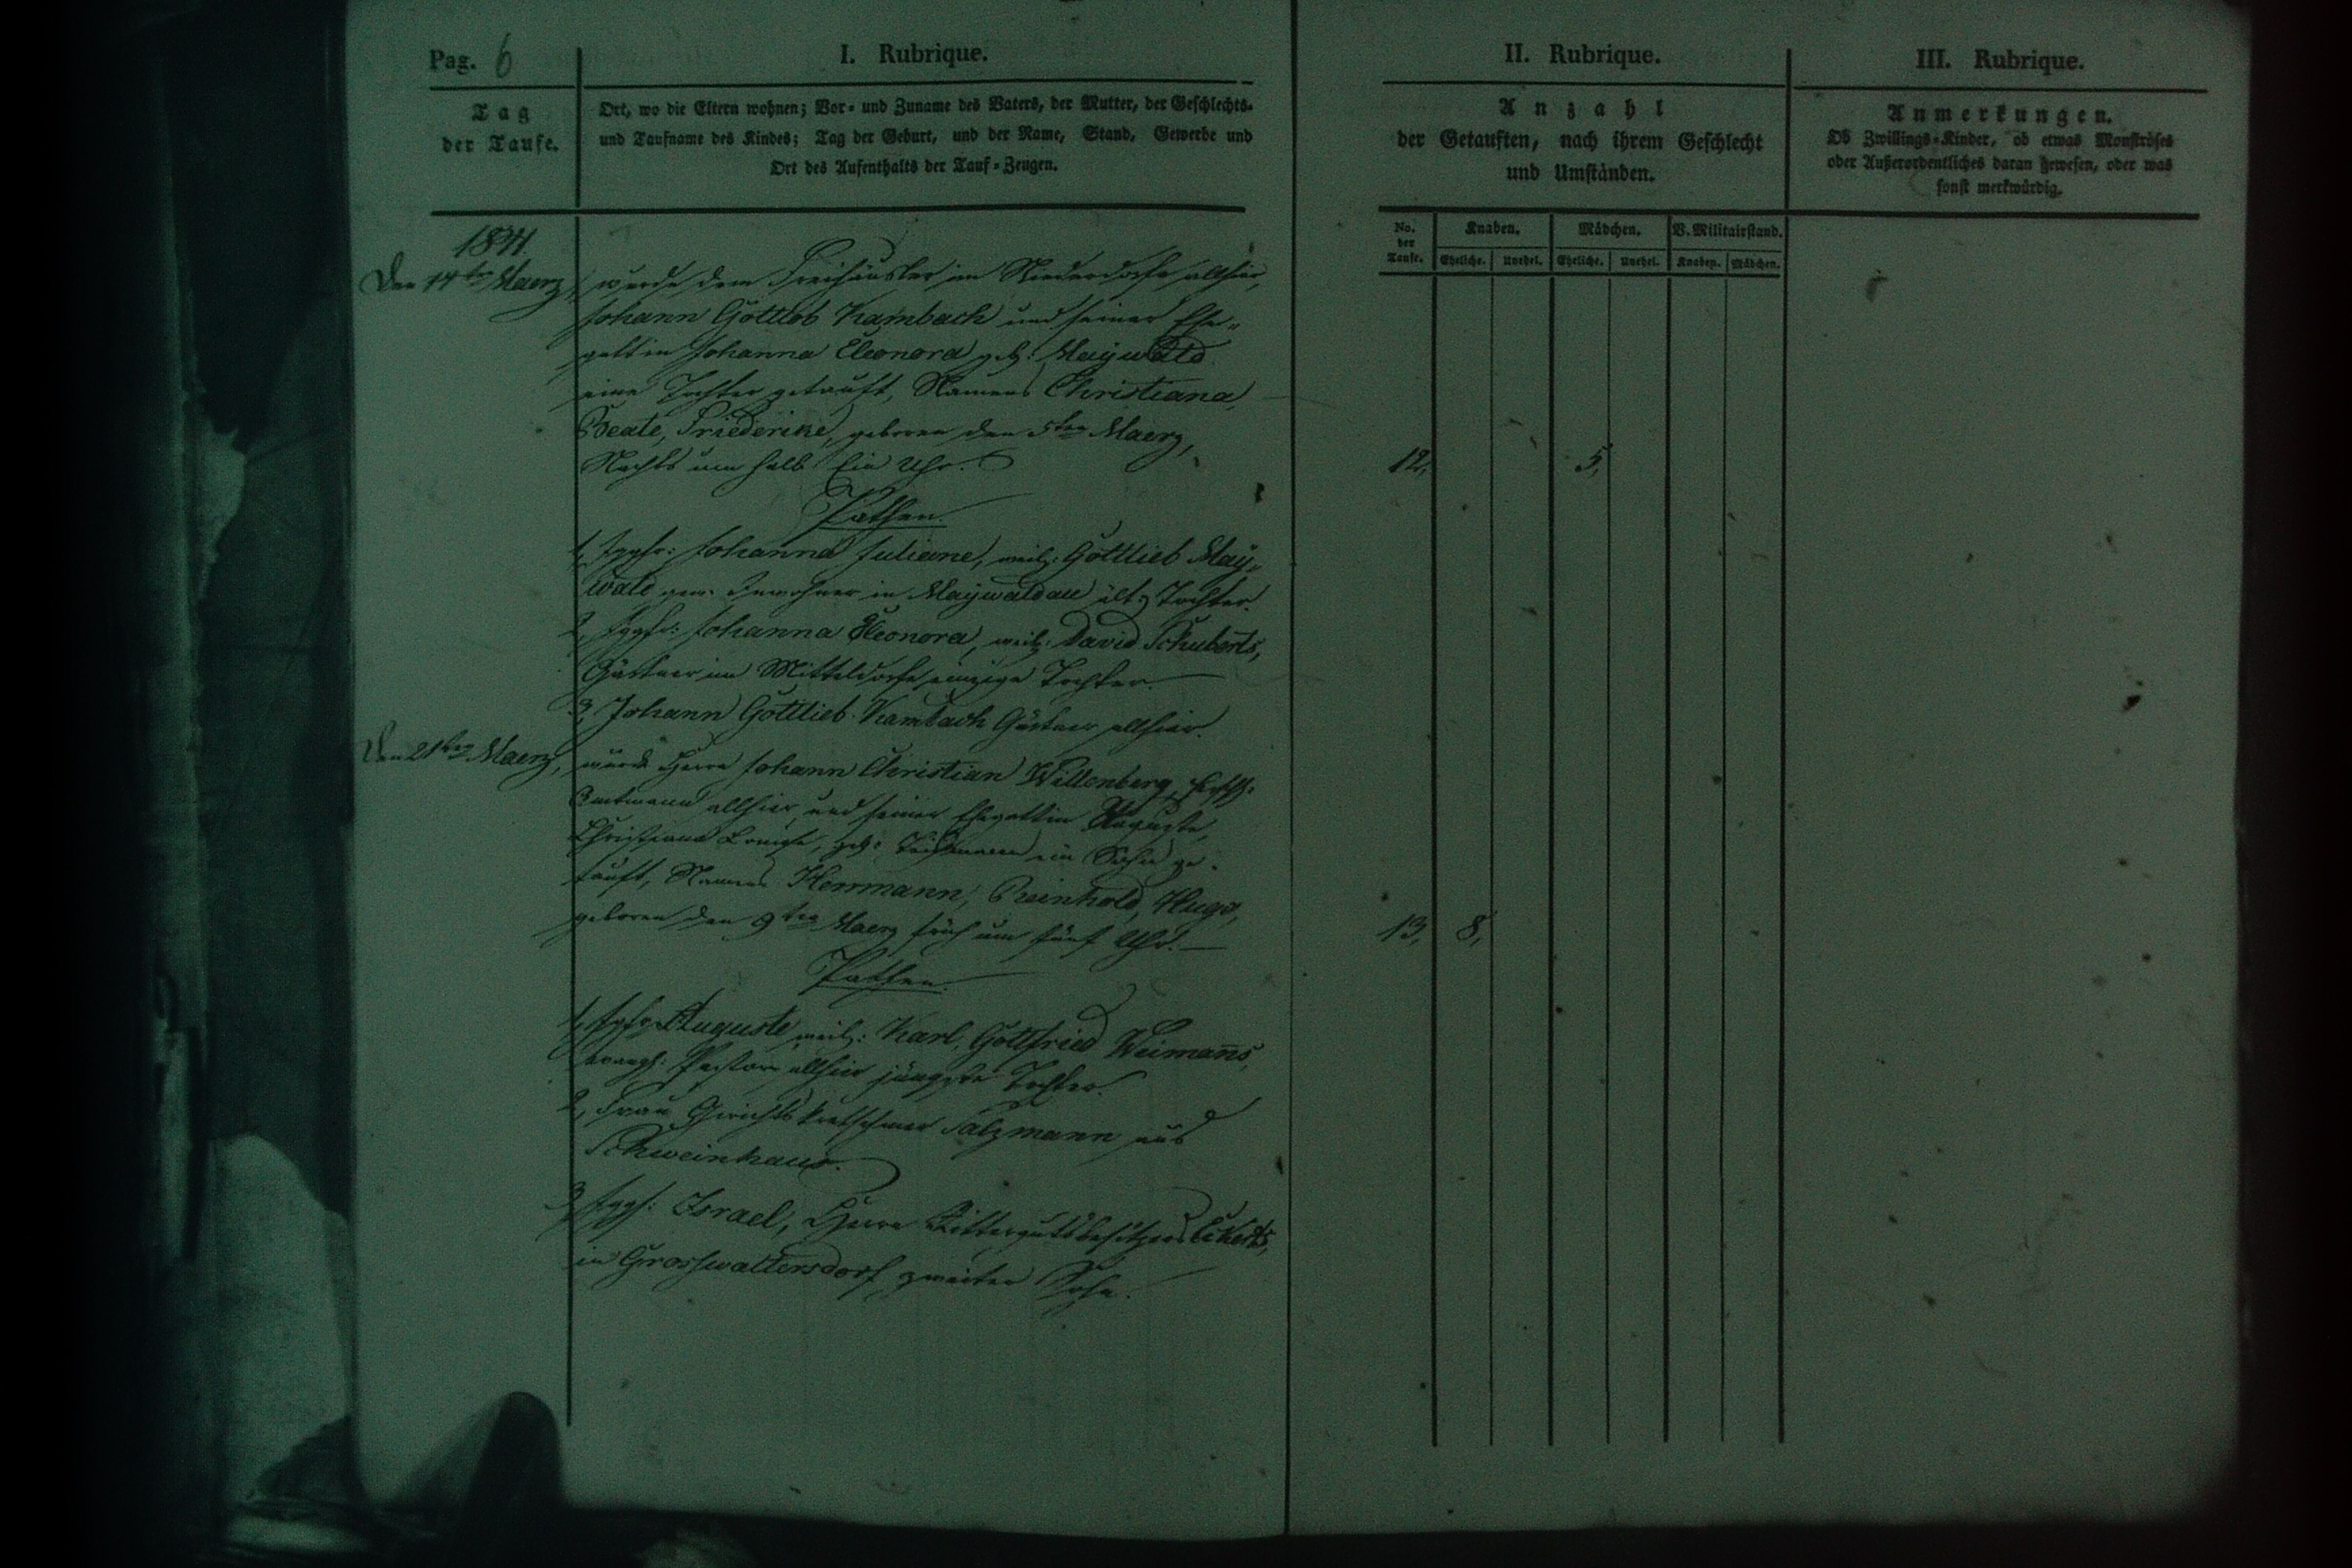 Pag. 6
I. Rubrique.
II. Rubrique.
III. Rubrique.
Tag
der Taufe.
Ort, wo die Eltern wohnen; Vor- und Zuname des Vaters, der Mutter, der Geschlechts-
und Taufname des Kindes; Tag der Geburt, und der Name, Stand, Gewerbe und
Ort des Aufenthalts der Tauf-Zeugen.
Anzahl
der Getauften, nach ihrem Geschlecht
und Umständen.
Anmerkungen.
Ob Zwillings-Kinder, ob etwas Monströses
oder Außerordentliches daran gewesen, oder was
sonst merkwürdig.
No.
der
Taufe.
Knaben.
Mädchen.
V. Militairstand.
Eheliche. Unehel. Eheliche. Unehel. Knaben. Mädchen.
1841.
Den 14ten Maerz, wurde dem Freihäusler im Niederdorfe allhier,
Johann Gottlob Kambach und seiner Ehe-
gattin Johanna Eleonora geb: Maywald
eine Tochter getauft, Namens Christiana,
Beate, Friederike, geboren den 5ten Maerz,
Nachts um halb Ein Uhr.
12, 5,
Pathen.
1, Jgfr: Johanna Juliane, weil: Gottlieb May-
wald gew. Inwohner in Maywaldau ält: Tochter.
2, Jgfr: Johanna Eleonora, weil: David Schuberts,
Gärtner im Mitteldorfe einzige Tochter.
3, Johann Gottlieb Kambach Gärtner allhier.
Den 21ten Maerz, wurde Herrn Johann Christian Willenberg,
Amtmann allhier, und seiner Ehegattin Auguste,
Christiane Louise, geb: ein Sohn ge-
tauft, Namens Herrmann, Reinhold, Hugo,
geboren den 9ten Maerz früh um fünf Uhr.
13, 8,
Pathen.
1, Jgfr: Auguste weil: Karl, Gottfried Weimanns,
evangl: Pastor allhier jüngste Tochter.
2, Frau Gerichtskretschmer Salzmann aus
Schweinhaus.
3, Jggs: Israel, Herrn Rittergutsbesitzers Eckerts,
in Grosswaltersdorf zweiter Sohn.